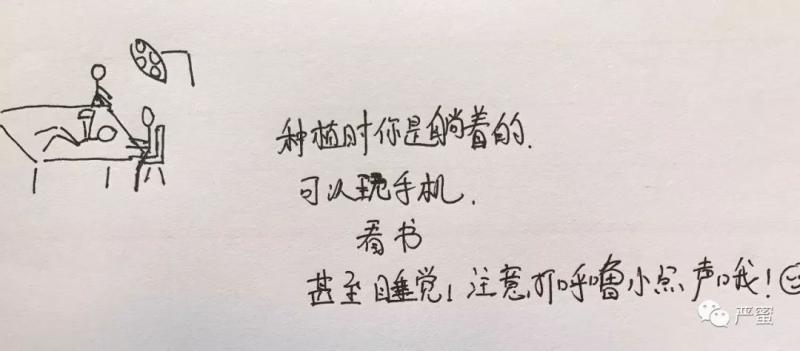 种植时你是躺着的.
可以玩手机.
看书
甚至睡觉!注意,打呼噜小点声哦!
严蜜